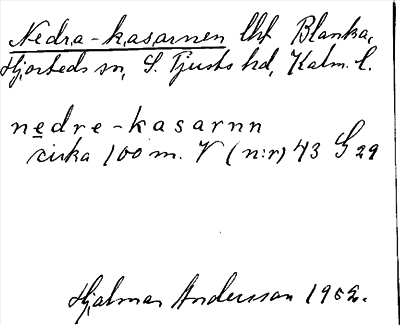 Nedra-kasarnen lht Blanka,
Hjorteds sn, S. Tjusts hd, Kalm. l.
nedre-kasarnn
cirka 100 m. V (n:r) 43 G 29
Hjalmar Andersson 1952.